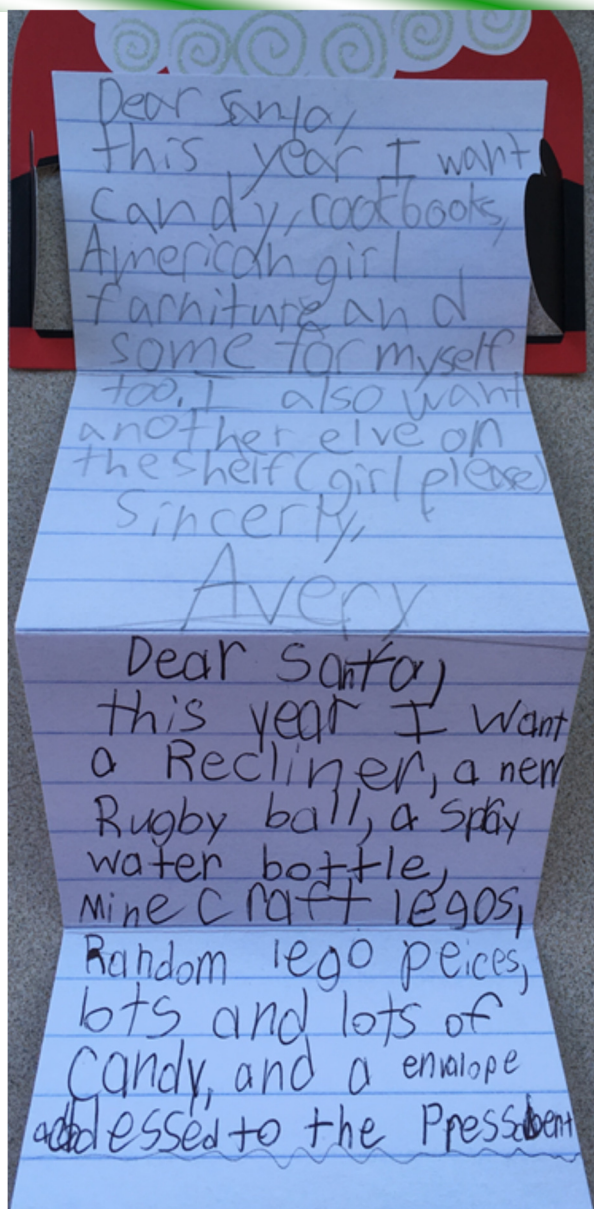 Dear Santa,
this year I want
candy, cookbooks,
American girl
farniture and
some for myself
too. I also want
another elve on
the shelf (girl please)
Sincerly,
Avery
Dear Santa,
this year I want
a Recliner, a new
Rugby ball, a spray
water bottle,
Minecraft legos,
Random lego peices,
lots and lots of
Candy, and a envalope
addessed to the Pressabent